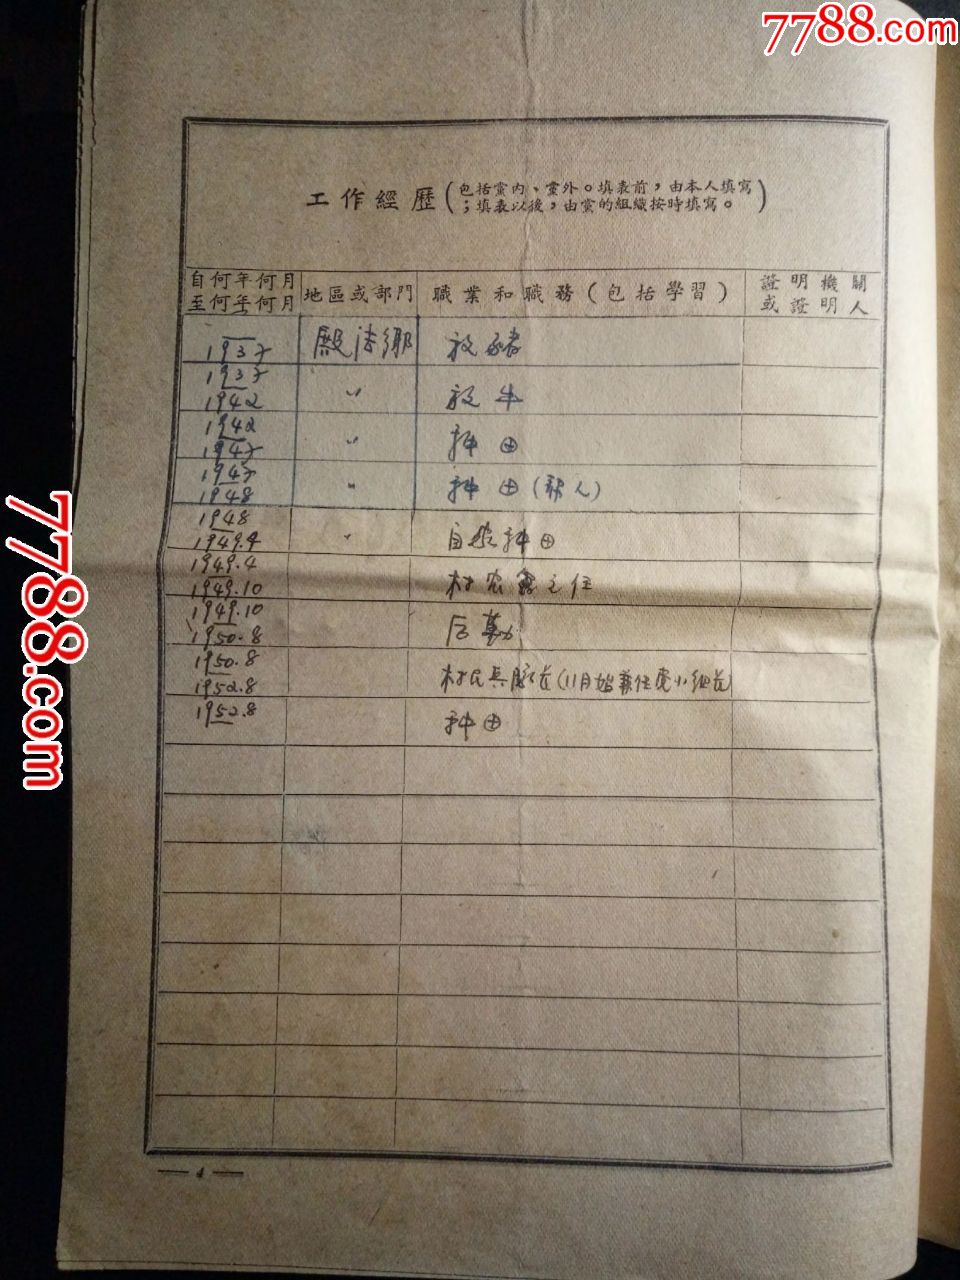 7788.com
7788.com
工作經歷(包括黨內、黨外。填表前,由本人填寫
;填表以後,由黨的組織按時填寫。)
自何年何月
至何年何月
地區或部門
職業和職務(包括學習)
證明機關
或證明人
殿法鄉 放豬
1937
1942 〃 放牛
1942
〃 种田
1948 〃 种田(帮人)
1948
1949.4 〃 自己种田
1949.4
1949.10 村农会主任
1949.10
1950.8 后勤
1950.8
1952.8 村民兵队长(11月始兼任党小组长)
1952.8 种田
— 4 —